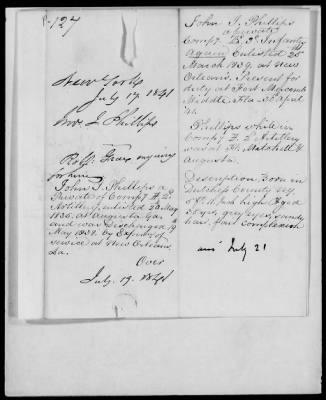 P-127
New York
July 17, 1841
Mrs. J Phillips
for him
John T. Phillips a
Private of Compy F. 2d
Artillery, enlisted 20 May
1836, at Augusta Ga.
and was Discharged 19
May 1839, by Expiration of
service at New Orleans,
La.
Over
July. 19. 1841
John T. Phillips
a private
Compy E. 3d Infantry
Again Enlisted 25
March 1839, at New
Orleans. Present for
duty at Fort
Middle Fla. 30 April
'41.
Phillips while in
Compy F. 2d Artillery
was at Ft. Mitchell &
Augusta.
Description Born in
County NY
5 ft. high Aged
36 yrs, grey eyes, sandy
hair, fair Complexion
ans July 21